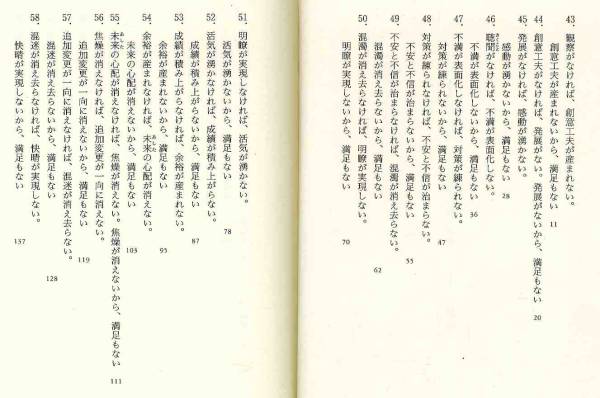 43. 観察がなければ、創意工夫が産まれない。
創意工夫が産まれないから、満足もない 11
44. 創意工夫がなければ、発展がない。発展がないから、満足もない 20
45. 発展がなければ、感動が湧かない。
感動が湧かないから、満足もない 28
46. 聴聞がなければ、不満が表面化しない。
不満が表面化しないから、満足もない 36
47. 不満が表面化しなければ、対策が練られない。
対策が練られないから、満足もない 47
48. 対策が練られなければ、不安と不信が治まらない。
不安と不信が治まらないから、満足もない 55
49. 不安と不信が治まらなければ、混濁が消え去らない。
混濁が消え去らないから、満足もない 62
50. 混濁が消え去らなければ、明瞭が実現しない。
明瞭が実現しないから、満足もない 70
51. 明瞭が実現しなければ、活気が湧かない。
活気が湧かないから、満足もない 78
52. 活気が湧かなければ、成績が積み上がらない。
成績が積み上がらないから、満足もない 87
53. 成績が積み上がらなければ、余裕が産まれない。
余裕が産まれないから、満足もない 95
54. 余裕が産まれなければ、未来の心配が消えない。
未来の心配が消えないから、満足もない 103
55. 未来の心配が消えなければ、焦燥が消えない。焦燥が消えないから、満足もない 111
56. 焦燥が消えなければ、追加変更が一向に消えない。
追加変更が一向に消えないから、満足もない 119
57. 追加変更が一向に消えなければ、混迷が消え去らない。
混迷が消え去らないから、満足もない 128
58. 混迷が消え去らなければ、快晴が実現しない。
快晴が実現しないから、満足もない 137